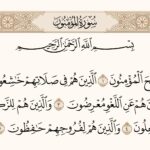 سُورَةُ المُؤْمِنُونَ
بِسْمِ ٱللَّهِ ٱلرَّحْمَٰنِ ٱلرَّحِيمِ
حَ ٱلْمُؤْمِنُونَ ١ ٱلَّذِينَ هُمْ فِي صَلَاتِهِمْ خَٰشِعُو
هُمْ عَنِ ٱللَّغْوِ مُعْرِضُونَ ٣ وَٱلَّذِينَ هُمْ لِلزَّكَ
عِلُونَ ٤ وَٱلَّذِينَ هُمْ لِفُرُوجِهِمْ حَٰفِظُونَ ٥